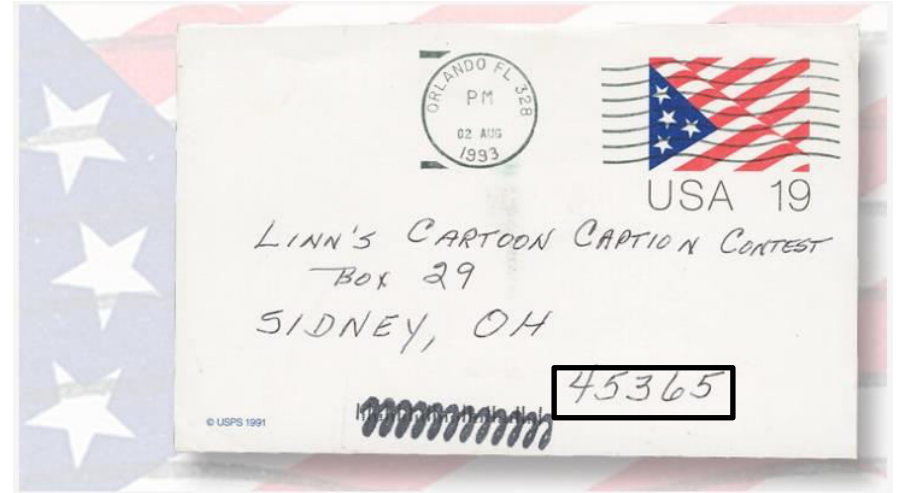 ORLANDO FL 328
PM
02 AUG
1993
USA 19
LINN'S CARTOON CAPTION CONTEST
BOX 29
SIDNEY, OH
45365
© USPS 1991